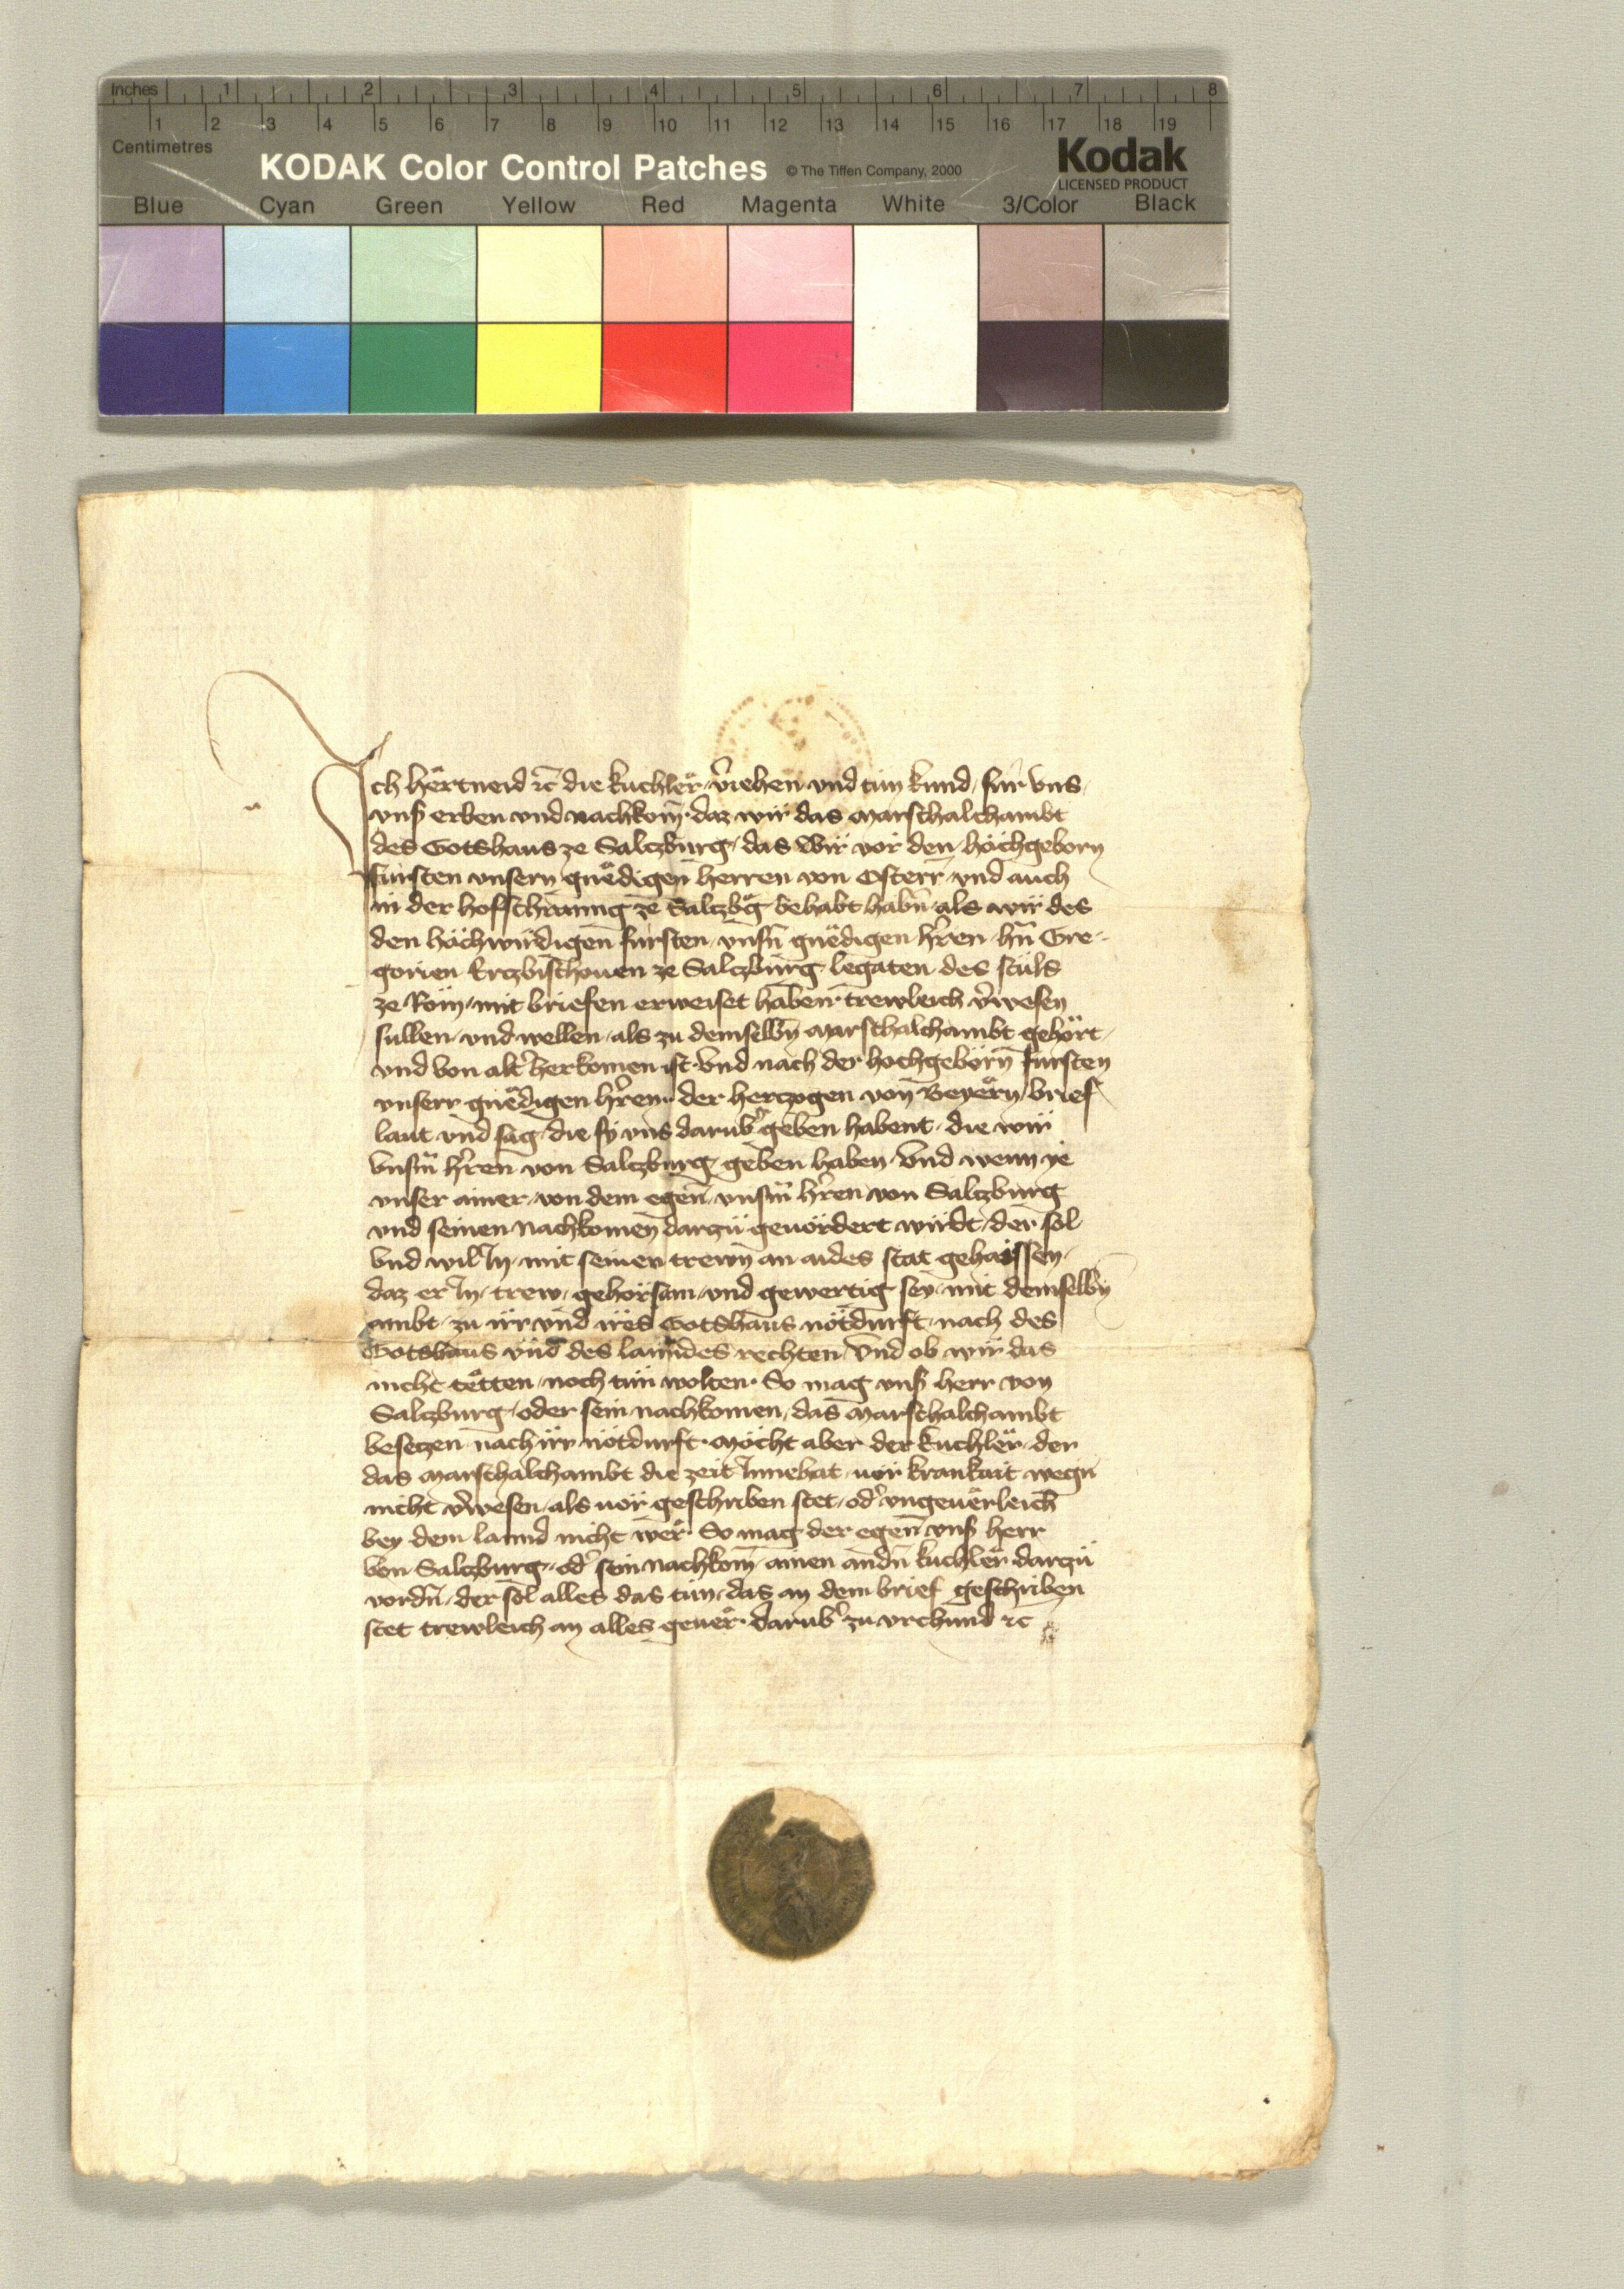 Inches 1 2 3 4 5 6 7 8
1 2 3 4 5 6 7 8 9 10 11 12 13 14 15 16 17 18 19
Centimetres
KODAK Color Control Patches © The Tiffen Company, 2000 Kodak
LICENSED PRODUCT
Blue Cyan Green Yellow Red Magenta White 3/Color Black
Ich Hërtneid ꝛc̄ die kuchlër v̓iehen vnd tün kund für vns
vnß erben vnd nachkom̄ daz wir das marschalchambt
des Gotshaus ze Salczburg das wir vor den höchgeborn
fürsten vnsern gnëdigen herren von Osterr̄ vnd auch
in der hofschrannig ze Salczb̓g behabt habn̄ als wir des
den höchwirdigen fürsten vnsn̄ gnëdigen hr̓ren hn̄ Gre-
gorien Erczbischouen ze Salczburg legaten des stüls
ze Röm mit briefen erweiset haben trewleich v̓wesen
sullen vnd wellen als zu demselbn̄ marschalchambt gehört
vnd von alt̓ herkomen ist vnd nach der hochgeborn̄ fürsten
vnserr gnëdigen hr̓ren der herczogen von Beyërn brief
laut vnd sag die sÿ vns darub̓ geben habent die wir
vnsm̄ hr̓ren von Salczburg geben haben vnd wenn ye
vnser ainer von dem egen̄ vnsm̄ hr̓ren von Salczburg
vnd seinen nachkomen darzü geuördert wirdt der sol
vnd wil In mit seinen trewn̄ an aides stat gehaissen
daz er In trew gehörsam vnd gewertig seÿ mit demselbn̄
ambt zu irr vnd ires Gotshaus nötdurft nach des
Gotshaus vnd des lanndes rechten vnd ob wir das
nicht tëtten noch tün wolten So mag vnß herr von
Salczburg oder sein nachkomen das marschalchambt
beseczen nach irr nötdurft möcht aber der kuchlër der
das marschalchambt die zeit Innehat uor krankait wegn̄
nicht v̓wesen als uor geschriben stet od̓ vngeuërleich
bey dem lannd nicht wër So mag der egen̄ vnß herr
von Salczburg od̓ sein nachkom̄ ainen andn̄ kuchlër darzü
vordn̄ der sol alles das tün das an dem brief geschriben
stet trewleich an alles geuër darub̓ zu vrchund ꝛc̄